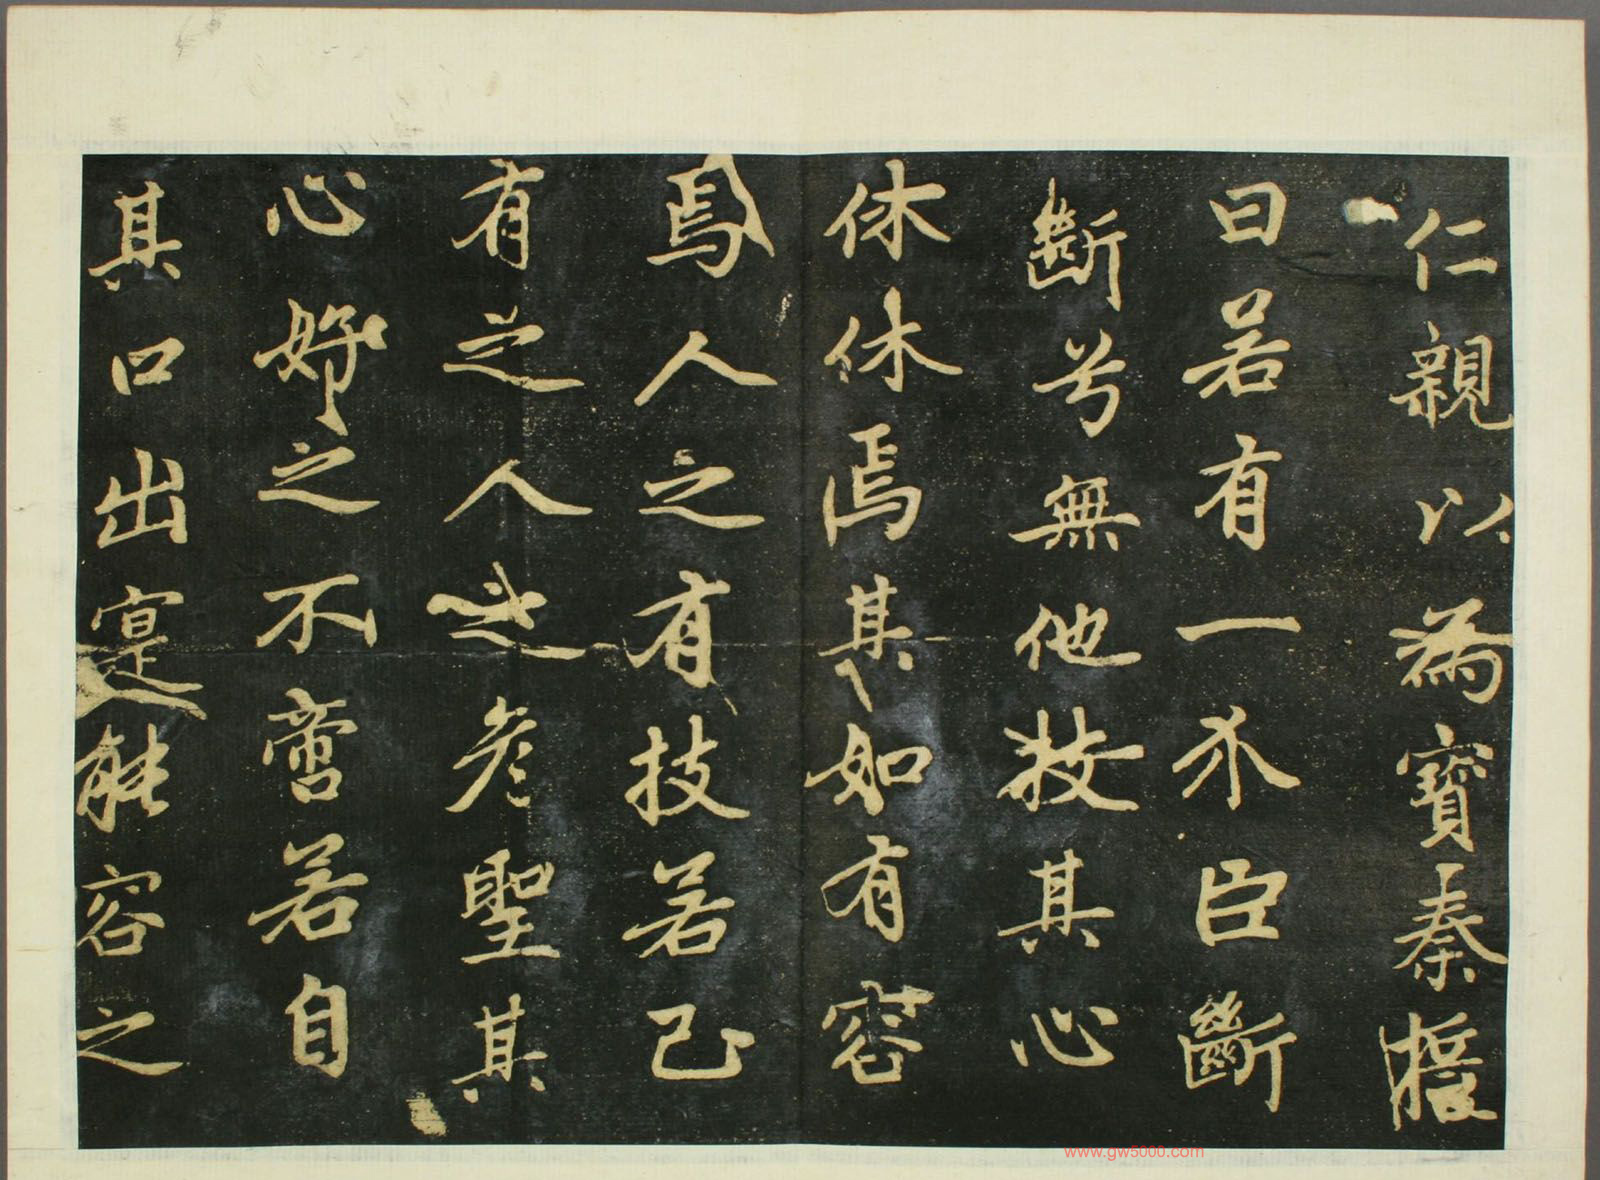 仁親以為寶秦誓
曰若有一介臣斷
斷兮無他技其心
休休焉其如有容
焉人之有技若己
有之人之彥聖其
心好之不啻若自
其口出寔能容之
www.gw5000.com